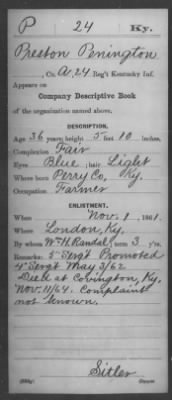 P 24 Ky.
Preston Penington
, Co. A, 24 Reg't Kentucky Inf.
Appears on
Company Descriptive Book
of the organization named above.
DESCRIPTION.
Age 36 years; height 5 feet 10 inches.
Complexion Fair
Eyes Blue; hair Light
Where born Perry Co, Ky.
Occupation Farmer
ENLISTMENT.
When Nov. 1, 1861.
Where London, Ky.
By whom Wm H. Randal; term 3 y'rs.
Remarks: 5" Serg't Promoted
4" Serg't May 3/62
Died at Covington, Ky.
Nov. 11/64. Complaint
not known.
Sitler
Copyist.